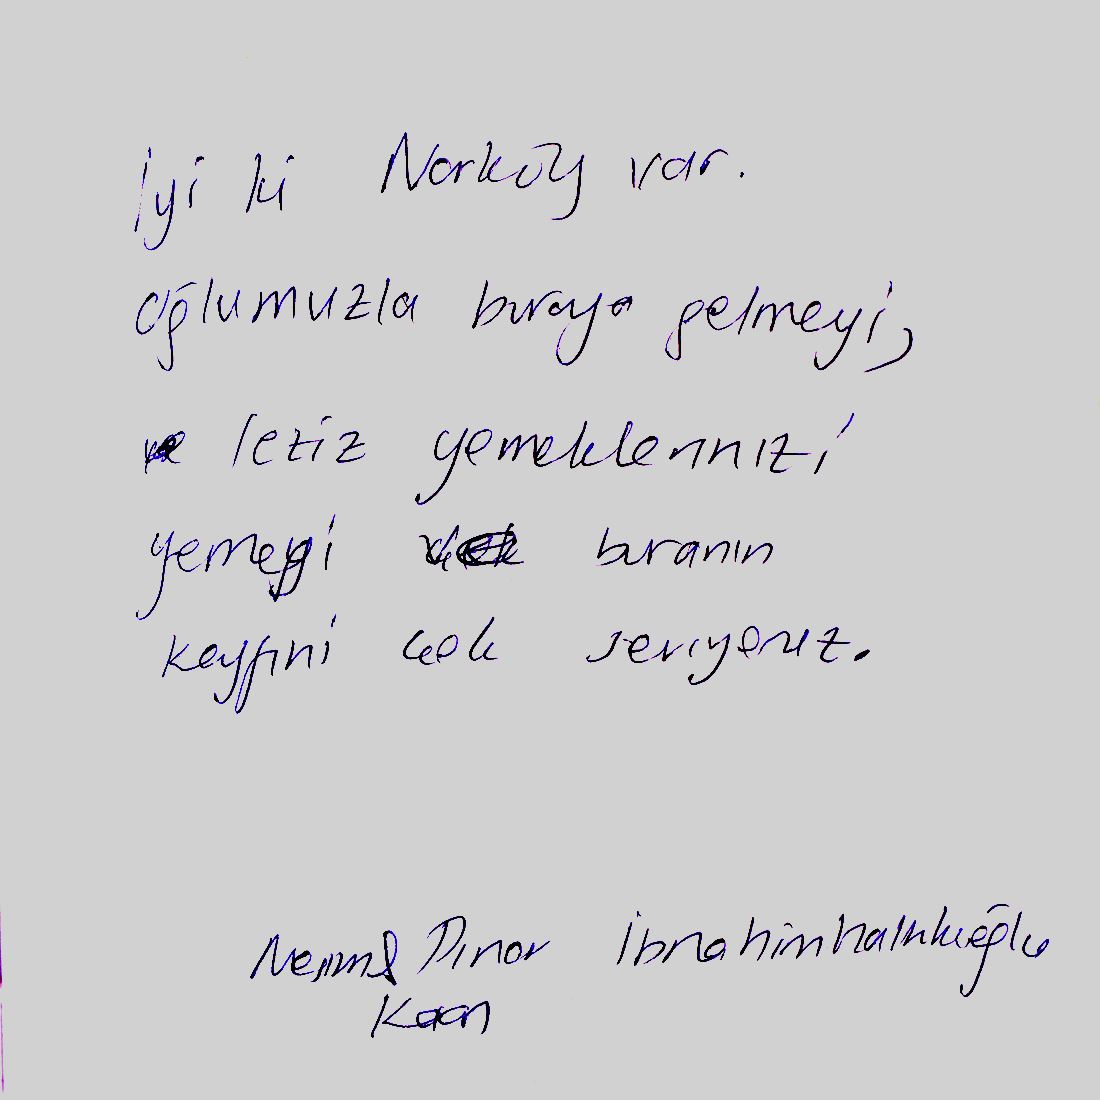 İyi ki Narköy var.
Oğlumuzla buraya gelmeyi,
leziz yemeklerinizi
yemeyi buranın
keyfini çok seviyoruz.
Pınar
Kaan